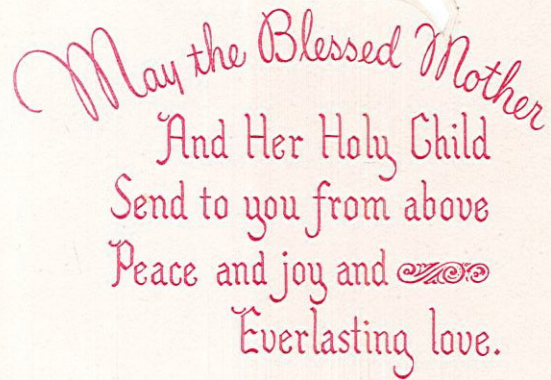 May the Blessed Mother
And Her Holy Child
Send to you from above
Peace and joy and
Everlasting love.